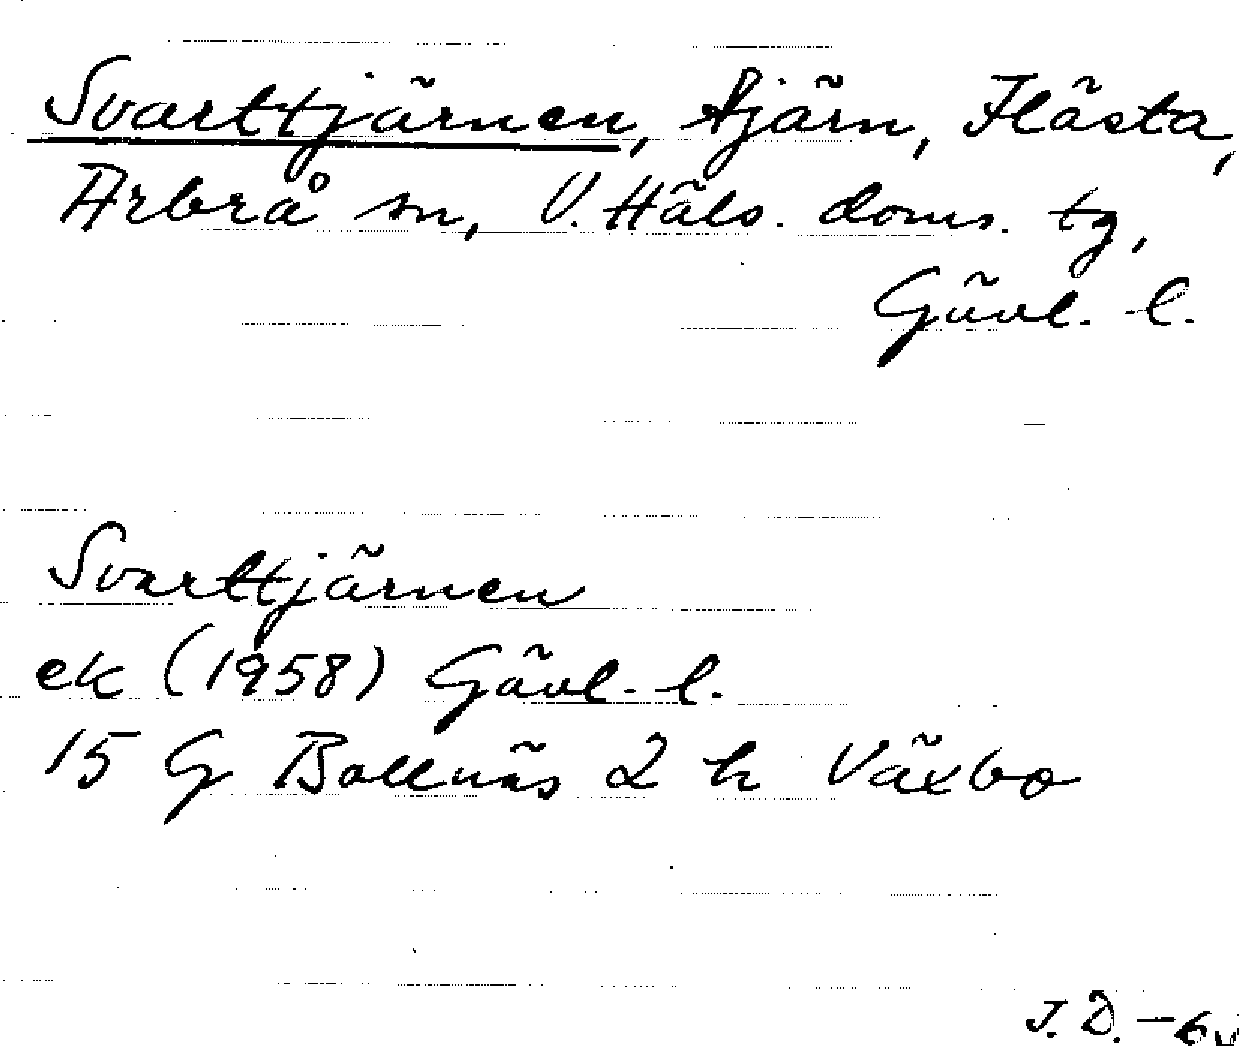 Svarttjärnen, tjärn, Flästa,
Arbrå sn, V. Häls. doms. tg,
Gävl. l.
Svarttjärnen
ek (1958) Gävl. l.
15 G Bollnäs 2 h Växbo
J. D. -